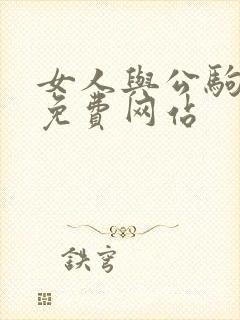 女人與公駒
免費网佔
鉄穹